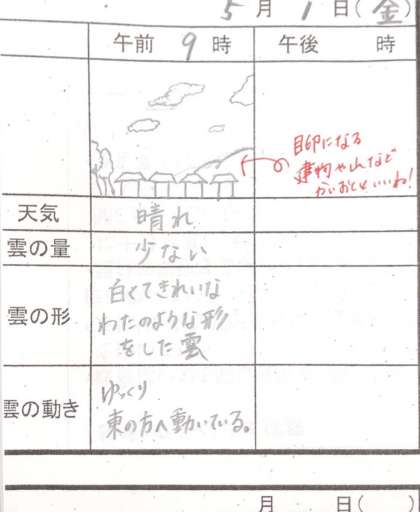 5月1日(金)
午前 9時 午後 時
目印になる
建物や山など
かいおくといいね!
天気 晴れ
雲の量 少ない
雲の形 白くてきれいな
わたのような形
をした雲
雲の動き ゆっくり
東の方へ動いている。
月 日( )